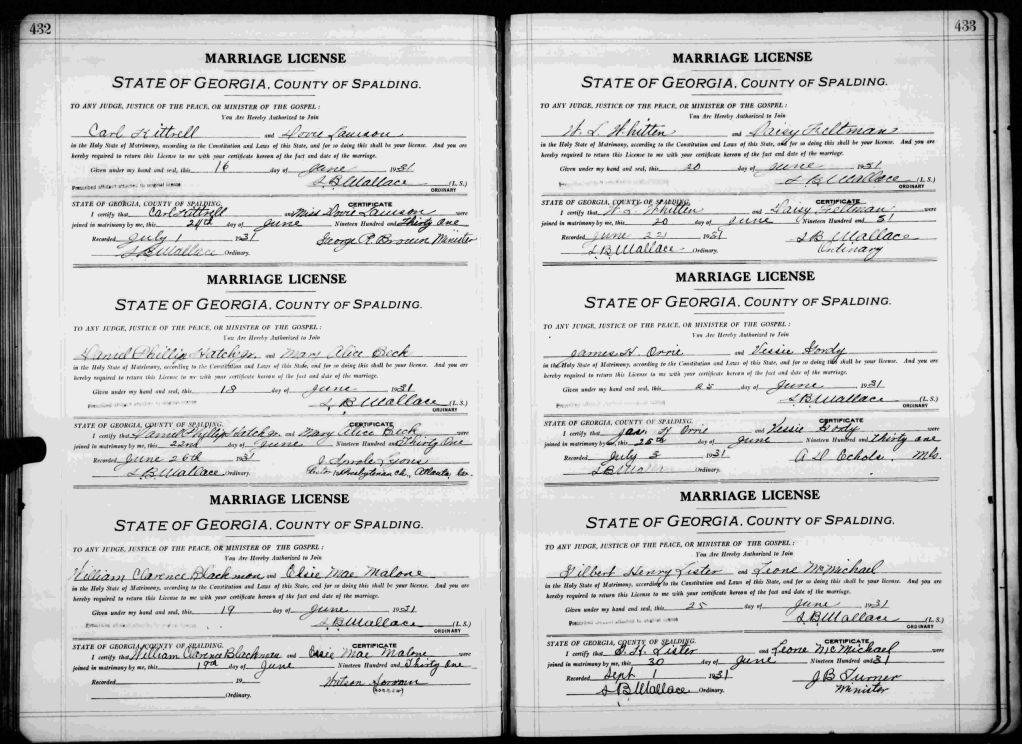 432
MARRIAGE LICENSE
STATE OF GEORGIA, COUNTY OF SPALDING.
TO ANY JUDGE, JUSTICE OF THE PEACE, OR MINISTER OF THE GOSPEL:
You Are Hereby Authorized to Join
Carl Kittrell and Dovie Lawson
in the Holy State of Matrimony, according to the Constitution and Laws of this State, and for so doing this shall be your license. And you are
hereby required to return this License to me with your certificate hereon of the fact and date of the marriage.
Given under my hand and seal, this 16 day of June 1931
Prescribed affidavit attached to original license B Wallace (L. S.)
ORDINARY
STATE OF GEORGIA, COUNTY OF SPALDING. CERTIFICATE
I certify that Carl Kittrell and Miss Dovie Lawson were
joined in matrimony by me, this 24th day of June Nineteen Hundred and Thirty One
Recorded July 1 1931 George R. Brown Minister
B Wallace Ordinary.
MARRIAGE LICENSE
STATE OF GEORGIA, COUNTY OF SPALDING.
TO ANY JUDGE, JUSTICE OF THE PEACE, OR MINISTER OF THE GOSPEL:
You Are Hereby Authorized to Join
Daniel Phillip Hatch Jr. and Mary Alice Beck
in the Holy State of Matrimony, according to the Constitution and Laws of this State, and for so doing this shall be your license. And you are
hereby required to return this License to me with your certificate hereon of the fact and date of the marriage.
Given under my hand and seal, this 18 day of June 1931
B Wallace (L. S.)
ORDINARY
STATE OF GEORGIA, COUNTY OF SPALDING. CERTIFICATE
I certify that Daniel Hatch Jr. and Mary Alice Beck were
joined in matrimony by me, this 22nd day of June Nineteen Hundred and Thirty One
Recorded June 26th 1931 Lyons
B Wallace Ordinary. Presbyterian Ch, Atlanta Ga.
MARRIAGE LICENSE
STATE OF GEORGIA, COUNTY OF SPALDING.
TO ANY JUDGE, JUSTICE OF THE PEACE, OR MINISTER OF THE GOSPEL:
You Are Hereby Authorized to Join
William Clarence Blackmon and Elsie Mae Malone
in the Holy State of Matrimony, according to the Constitution and Laws of this State, and for so doing this shall be your license. And you are
hereby required to return this License to me with your certificate hereon of the fact and date of the marriage.
Given under my hand and seal, this 19 day of June 1931
B Wallace (L. S.)
ORDINARY
STATE OF GEORGIA, COUNTY OF SPALDING. CERTIFICATE
I certify that William Clarence Blackmon and Mae Malone were
joined in matrimony by me, this day of June Nineteen Hundred and Thirty One
Recorded 19
Ordinary.
433
MARRIAGE LICENSE
STATE OF GEORGIA, COUNTY OF SPALDING.
TO ANY JUDGE, JUSTICE OF THE PEACE, OR MINISTER OF THE GOSPEL:
You Are Hereby Authorized to Join
W. L. Whitten and Daisy Feltman
in the Holy State of Matrimony, according to the Constitution and Laws of this State, and for so doing this shall be your license. And you are
hereby required to return this License to me with your certificate hereon of the fact and date of the marriage.
Given under my hand and seal, this 20 day of June 1931
B Wallace (L. S.)
ORDINARY
STATE OF GEORGIA, COUNTY OF SPALDING. CERTIFICATE
I certify that W. L. Whitten and Daisy Feltman were
joined in matrimony by me, this 20 day of June Nineteen Hundred and 31
Recorded June 22 1931 B Wallace
B Wallace Ordinary. Ordinary
MARRIAGE LICENSE
STATE OF GEORGIA, COUNTY OF SPALDING.
TO ANY JUDGE, JUSTICE OF THE PEACE, OR MINISTER OF THE GOSPEL:
You Are Hereby Authorized to Join
James H. Orrie and Vessie Gordy
in the Holy State of Matrimony, according to the Constitution and Laws of this State, and for so doing this shall be your license. And you are
hereby required to return this License to me with your certificate hereon of the fact and date of the marriage.
Given under my hand and seal, this 25 day of June 1931
B Wallace (L. S.)
ORDINARY
STATE OF GEORGIA, COUNTY OF SPALDING. CERTIFICATE
I certify that Jas H Orrie and Vessie Gordy were
joined in matrimony by me, this 25th day of June Nineteen Hundred and Thirty one
Recorded July 3 1931 Echols
Ordinary.
MARRIAGE LICENSE
STATE OF GEORGIA, COUNTY OF SPALDING.
TO ANY JUDGE, JUSTICE OF THE PEACE, OR MINISTER OF THE GOSPEL:
You Are Hereby Authorized to Join
Gilbert Henry Lister and Leone McMichael
in the Holy State of Matrimony, according to the Constitution and Laws of this State, and for so doing this shall be your license. And you are
hereby required to return this License to me with your certificate hereon of the fact and date of the marriage.
Given under my hand and seal, this 25 day of June 1931
B Wallace (L. S.)
ORDINARY
STATE OF GEORGIA, COUNTY OF SPALDING. CERTIFICATE
I certify that H Lister and Leone McMichael were
joined in matrimony by me, this 30 day of June Nineteen Hundred and 31
Recorded Sept 1 1931 J B Turner
B Wallace Ordinary. Minister